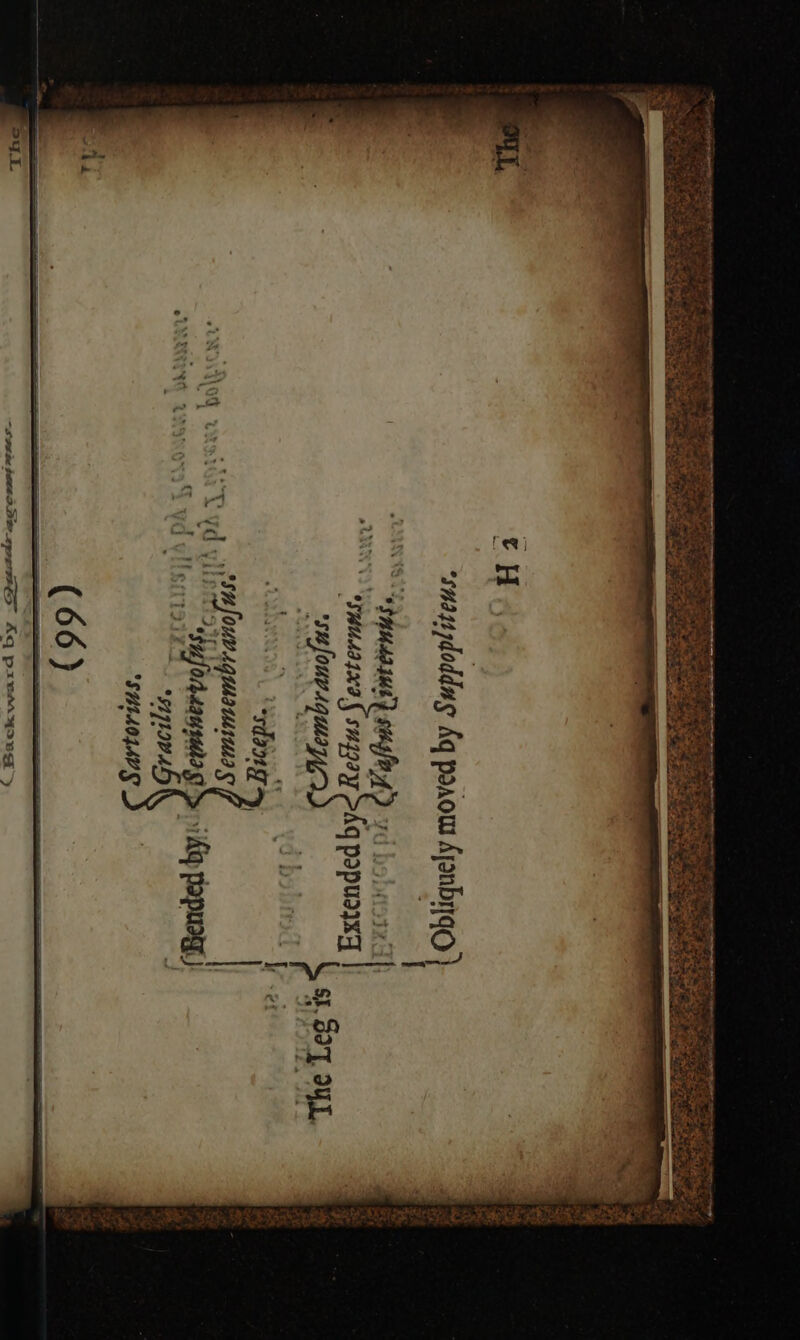 Backward by Quadrageminus.
The
(99)
Sartorius.
Gracilis.
Bended by Seminervoſus.
Semimembranoſus.
Biceps.
The Leg is Membranoſus.
Extended by Rectus externus.
Vaſtus internus.
Obliquely moved by Suppopliteus.
H 2
The